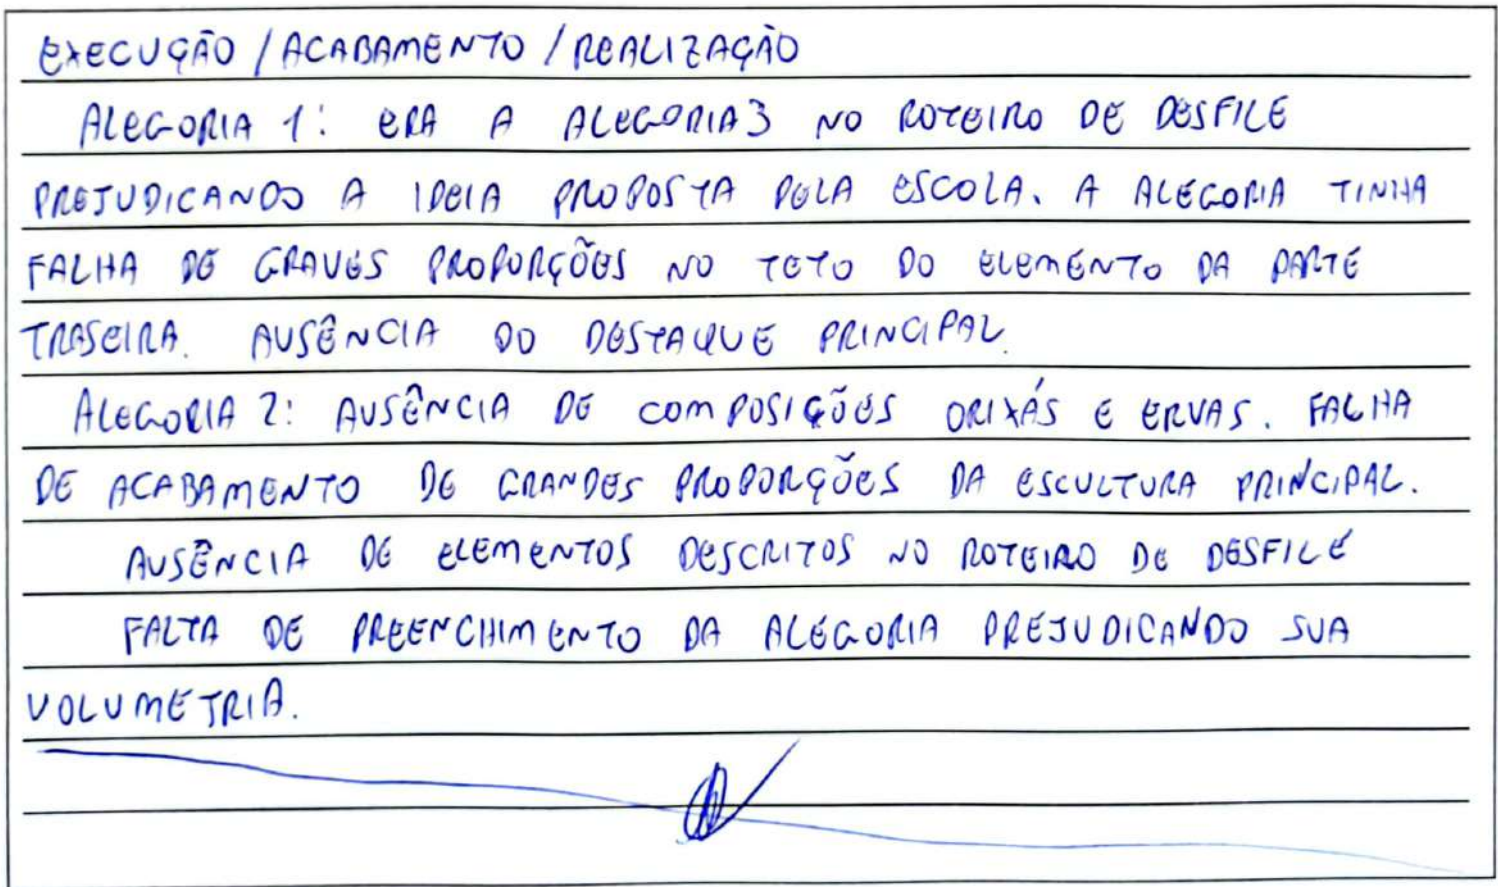 EXECUÇÃO / ACABAMENTO / REALIZAÇÃO
ALEGORIA 1: ERA A ALEGORIA 3 NO ROTEIRO DE DESFILE
PREJUDICANDO A IDEIA PROPOSTA PELA ESCOLA. A ALEGORIA TINHA
FALHA DE GRAVES PROPORÇÕES NO TETO DO ELEMENTO DA PARTE
TRASEIRA. AUSÊNCIA DO DESTAQUE PRINCIPAL.
ALEGORIA 2: AUSÊNCIA DE COMPOSIÇÕES ORIXÁS E ERVAS. FALHA
DE ACABAMENTO DE GRANDES PROPORÇÕES DA ESCULTURA PRINCIPAL.
AUSÊNCIA DE ELEMENTOS DESCRITOS NO ROTEIRO DE DESFILE
FALTA DE PREENCHIMENTO DA ALEGORIA PREJUDICANDO SUA
VOLUMETRIA.